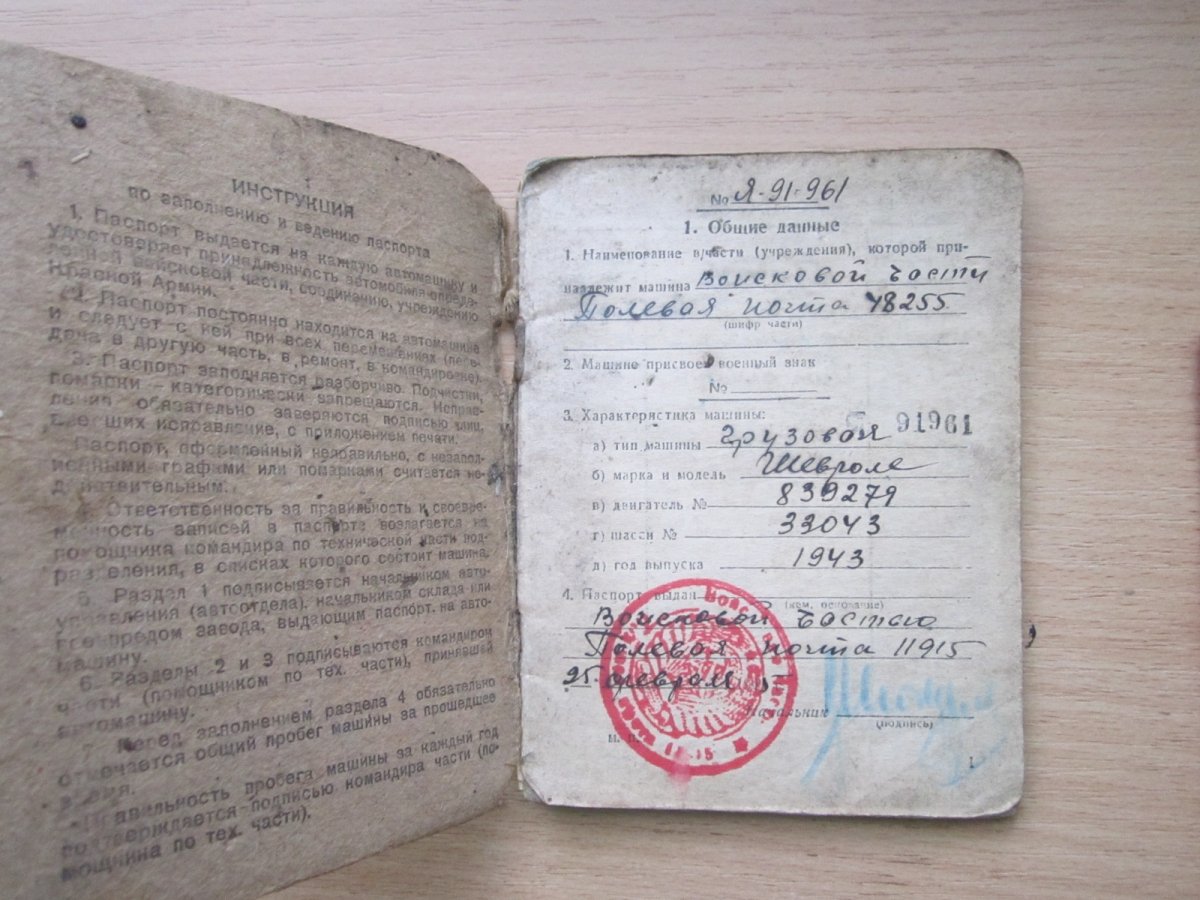 ИНСТРУКЦИЯ
по заполнению и ведению паспорта
1. Паспорт выдается на каждую автомашину и
удостоверяет принадлежность автомобиля опреде-
ленной войсковой части, соединению, учреждению
Красной Армии.
2. Паспорт постоянно находится на автомашине
и следует с ней при всех перемещениях (пере-
дача в другую часть, в ремонт, в командировке).
3. Паспорт заполняется разборчиво. Подчистки,
помарки — категорически запрещаются. Исправ-
ления обязательно заверяются подписью лиц,
внесших исправление, с приложением печати.
Паспорт, оформленный неправильно, с незапол-
ненными графами или помарками считается не-
действительным.
4. Ответственность за правильность и своевре-
менность записей в паспорте возлагается на
помощника командира по технической части под-
разделения, в списках которого состоит машина.
5. Раздел 1 подписывается начальником авто-
управления (автоотдела), начальником склада или
военпредом завода, выдающим паспорт на авто-
машину.
6. Разделы 2 и 3 подписываются командиром
части (помощником по тех. части), принявшей
автомашину.
Перед заполнением раздела 4 обязательно
отмечается общий пробег машины за прошедшее
время.
Правильность пробега машины за каждый год
подтверждается подписью командира части (по-
мощника по тех. части).
№ Я-91-961
1. Общие данные
1. Наименование в/части (учреждения), которой при-
надлежит машина Войсковой части
Полевая почта 48255
(шифр части)
2. Машине присвоен военный знак
№
3. Характеристика машины:
91961
а) тип машины грузовой
б) марка и модель Шевроле
в) двигатель № 839279
г) шасси № 33043
д) год выпуска 1943
4. Паспорт выдан
(кем, основание)
Войсковой частью
Полевая почта 11915
25 февраля
Начальник
(подпись)
1